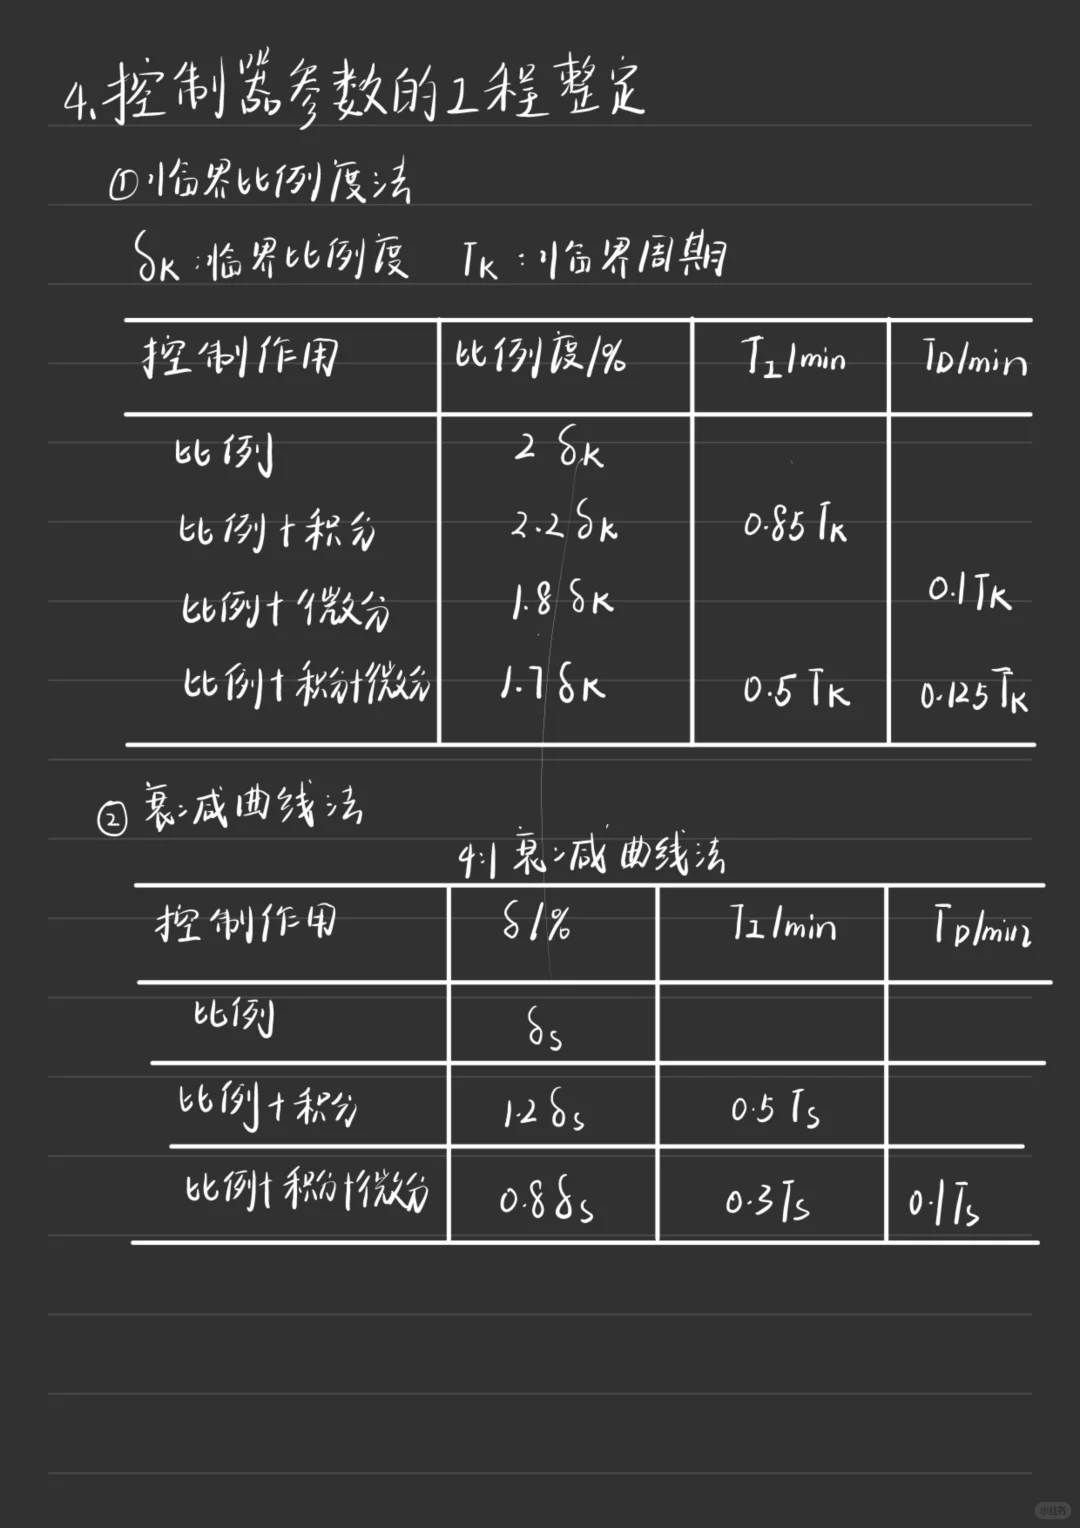 4.控制器参数的工程整定
①临界比例度法
δK:临界比例度 TK:临界周期
控制作用 比例度/% TI/min TD/min
比例 2δK
比例+积分 2.2δK 0.85TK
比例+微分 1.8δK 0.1TK
比例+积分+微分 1.7δK 0.5TK 0.125TK
②衰减曲线法
4:1衰减曲线法
控制作用 δ/% TI/min TD/min
比例 δs
比例+积分 1.2δs 0.5Ts
比例+积分+微分 0.8δs 0.3Ts 0.1Ts
小红书